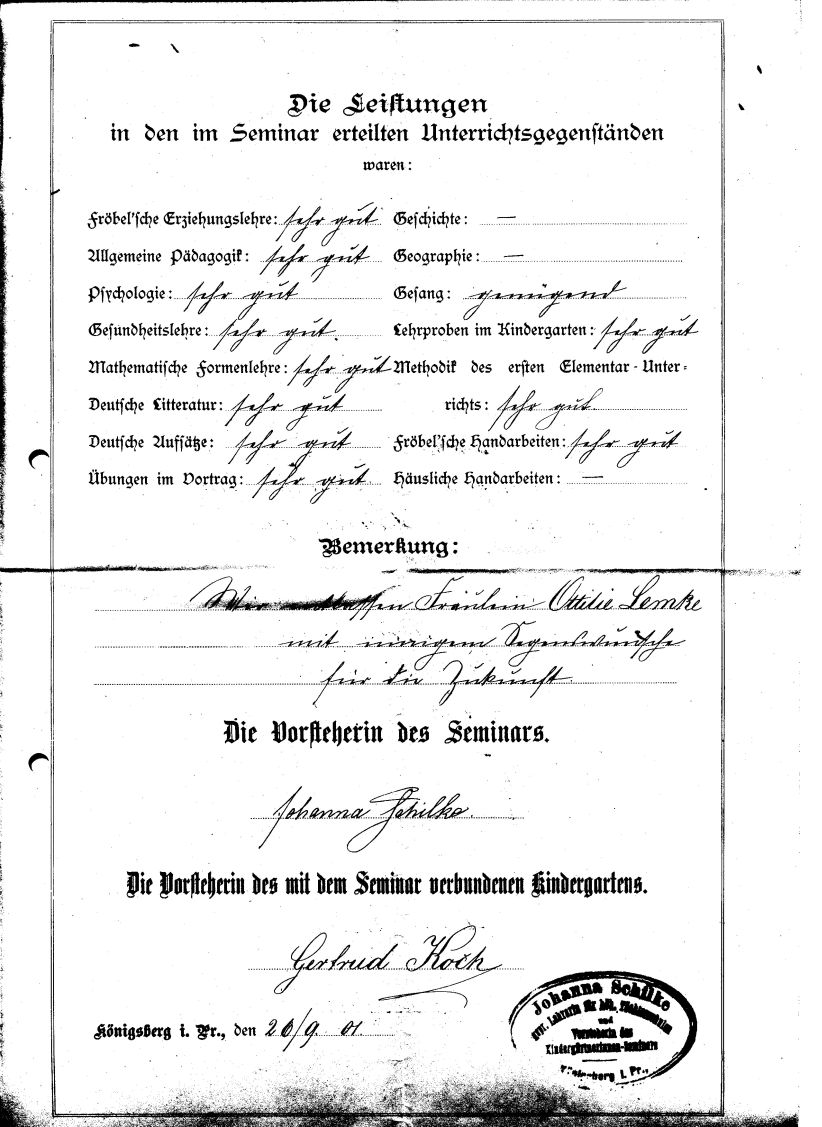 Die Leistungen
in den im Seminar erteilten Unterrichtsgegenständen
waren:
Fröbel'sche Erziehungslehre: sehr gut Geschichte: —
Allgemeine Pädagogik: sehr gut Geographie: —
Psychologie: sehr gut Gesang: genügend
Gesundheitslehre: sehr gut. Lehrproben im Kindergarten: sehr gut
Mathematische Formenlehre: sehr gut Methodik des ersten Elementar-Unter-
Deutsche Litteratur: sehr gut richts: sehr gut
Deutsche Aufsätze: sehr gut Fröbel'sche Handarbeiten: sehr gut
Übungen im Vortrag: sehr gut Häusliche Handarbeiten: —
Bemerkung:
Wir Fräulein Ottilie Lemke
mit innigem Segenswunsche
für die Zukunft.
Die Vorsteherin des Seminars.
Johanna Schilke.
Die Vorsteherin des mit dem Seminar verbundenen Kindergartens.
Gertrud Koch
Königsberg i. Pr., den 26/9 01.
Johanna Schilke
gepr. Lehrerin für
und
Vorsteherin des
Kindergärtnerinnen-Seminars
Königsberg i. Pr.